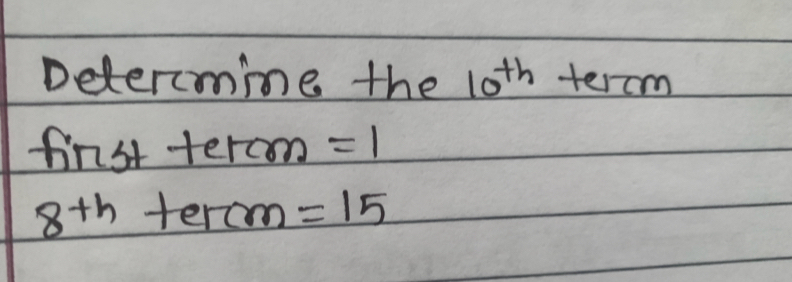 Determine the 10th term
first term = 1
8th term = 15